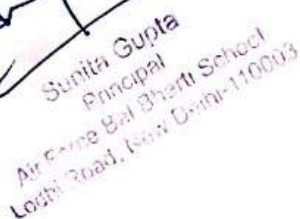 Sunita Gupta
Principal
Air Force Bal Bharti School
Lodhi Road, New Delhi-110003